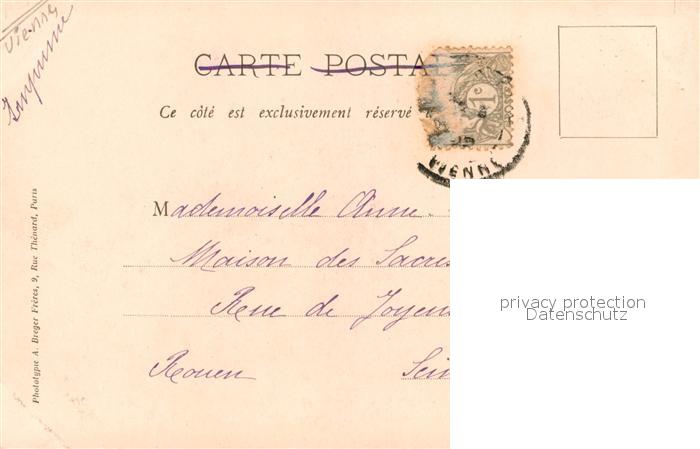 Vienne
Imprimé
CARTE POSTA
Ce côté est exclusivement réservé
1c
VIENNE
Mademoiselle Anne
Maison des Sacrés
Rue de Joyeu
Rouen Sein
Phototypie A. Breger Frères, 9, Rue Thénard, Paris
privacy protection
Datenschutz